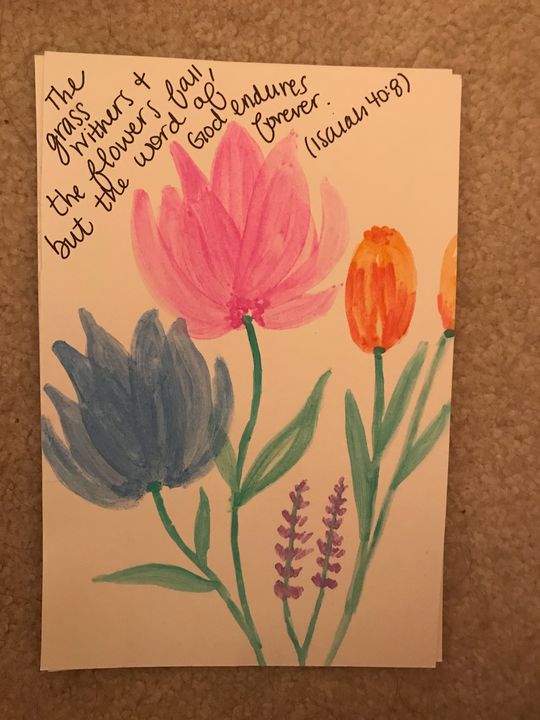 The
grass
withers &
the flowers fall,
but the word of
God endures
forever.
(Isaiah 40:8)